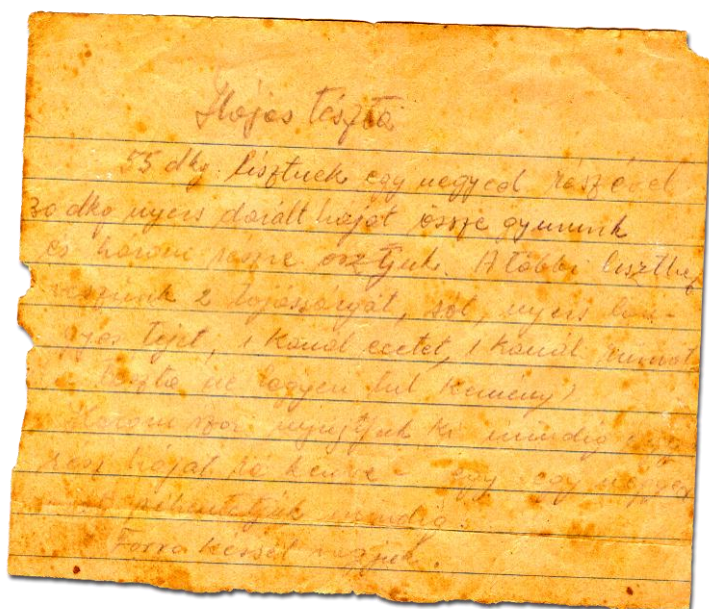 Hájas tészta
55 dkg. lisztnek egy negyed részével
30 dkg nyers darált háját össze gyurunk
és három részre osztjuk. A többi liszthez
veszünk 2 tojássárgát, sót, nyers lan-
gyos tejet, 1 kanál ecetet, 1 kanál rumot
tészta ne legyen tul kemény)
Három szor nyujtjuk ki mindig egy
rész háját rá kenve - egy egy negyed
pihentetjük mindig.
Forró késsel vagjuk.